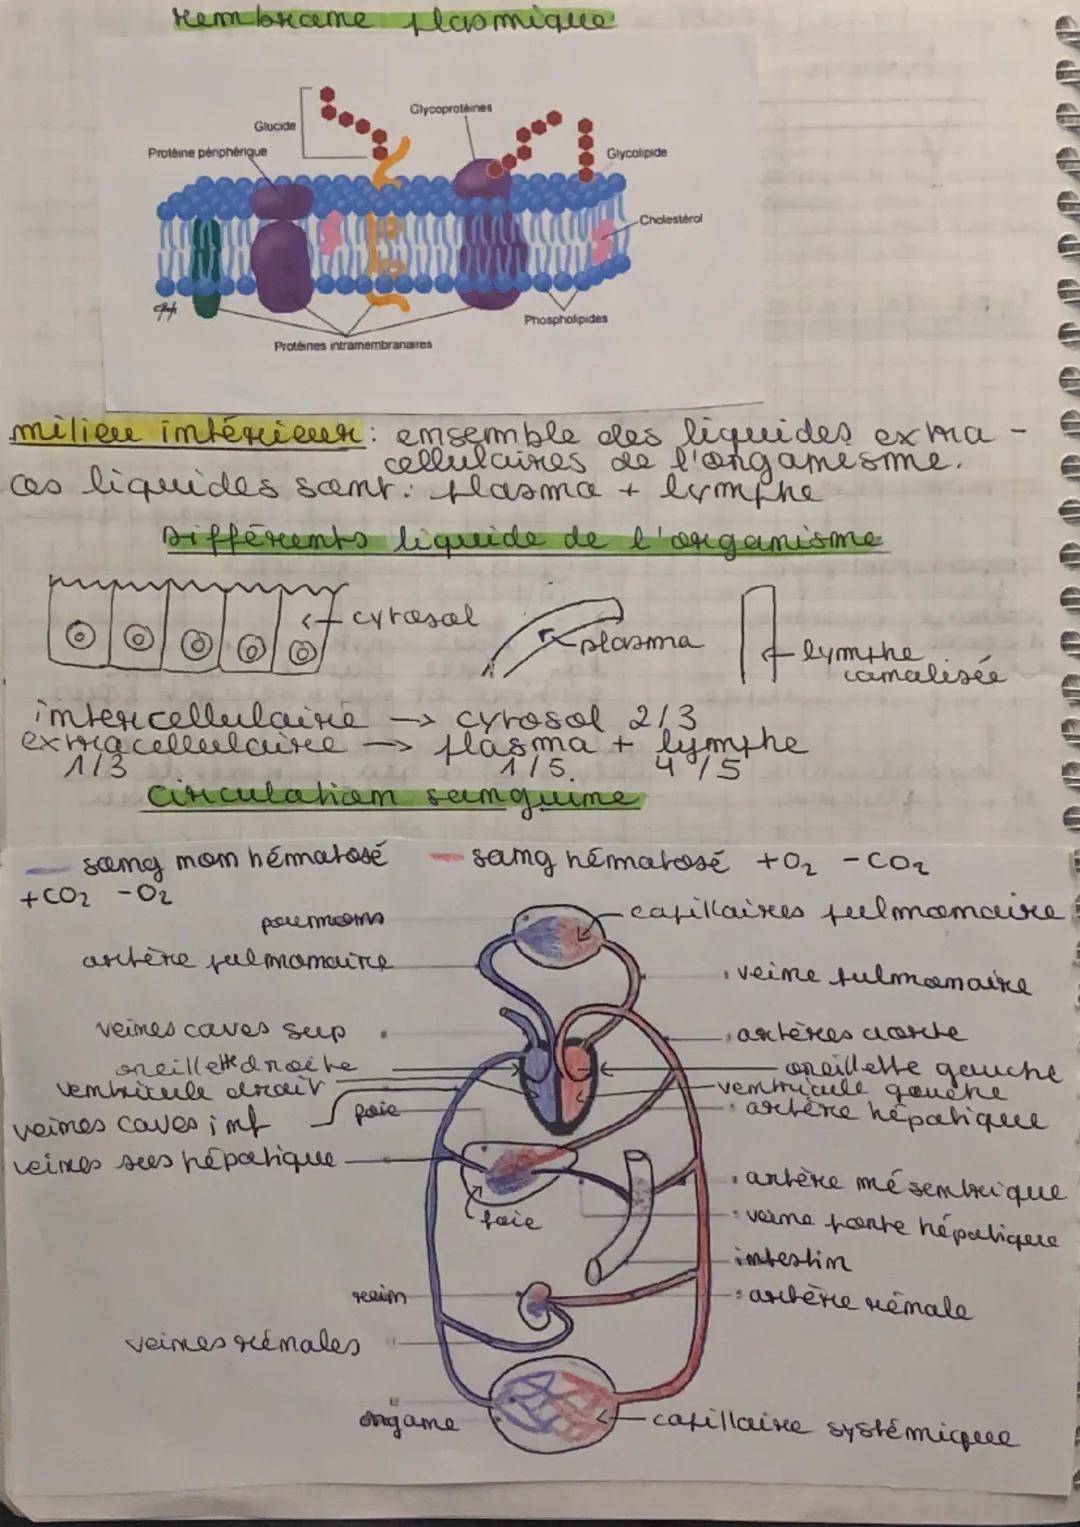 membrane plasmique
Glucide
Glycoprotéines
Protéine périphérique
Glycolipide
Cholestérol
Phospholipides
Protéines intramembranaires
milieu intérieur : ensemble des liquides extra -
cellulaires de l'organisme.
ces liquides sont : plasma + lymphe
Différents liquide de l'organisme
cytosol
plasma
lymphe
canalisée
intercellulaire → cytosol 2/3
extracellulaire → plasma + lymphe
1/3 1/5. 4/5
circulation sanguine
sang non hématosé
sang hématosé +O2 -CO2
+CO2 -O2
poumons
capillaires pulmonaire
artère pulmonaire
veine pulmonaire
veines caves sup
artères aorte
oreillette droite
oreillette gauche
ventricule droit
ventricule gauche
veines caves inf
foie
artère hépatique
veines sus hépatique
artère mésentrique
foie
veine porte hépatique
intestin
rein
artère rénale
veines rénales
organe
capillaire systémique